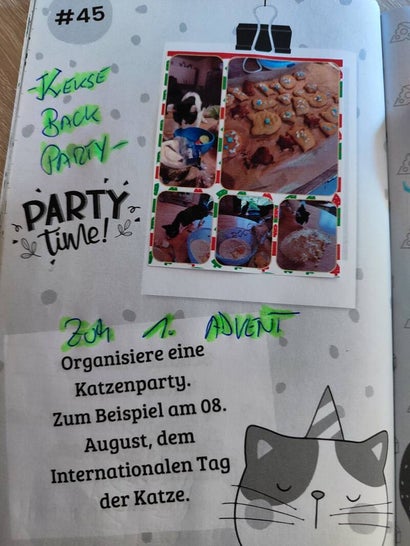 #45
-KEKSE
BACK
PARTY-
PARTY
time!
ZUM 1. ADVENT
Organisiere eine
Katzenparty.
Zum Beispiel am 08.
August, dem
Internationalen Tag
der Katze.